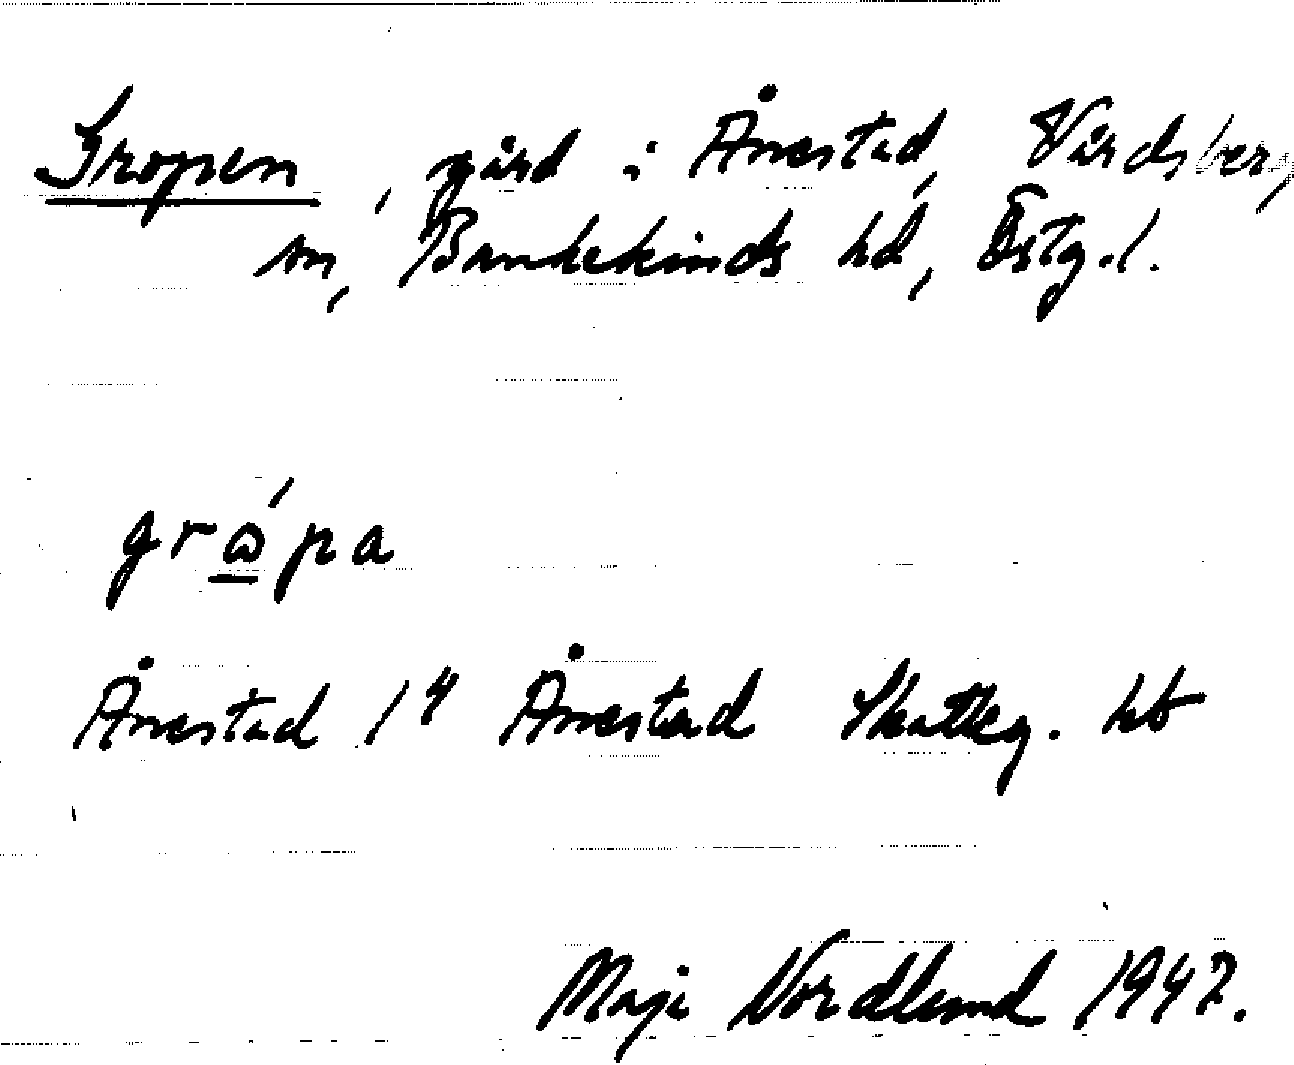 Gropen, gård i Ånestad, Vårdsberg
sn, Bankekinds hd, Östg.l.
grώpa
Ånestad 1⁴ Ånestad Skatteg. hb
Maja Nordlund 1947.